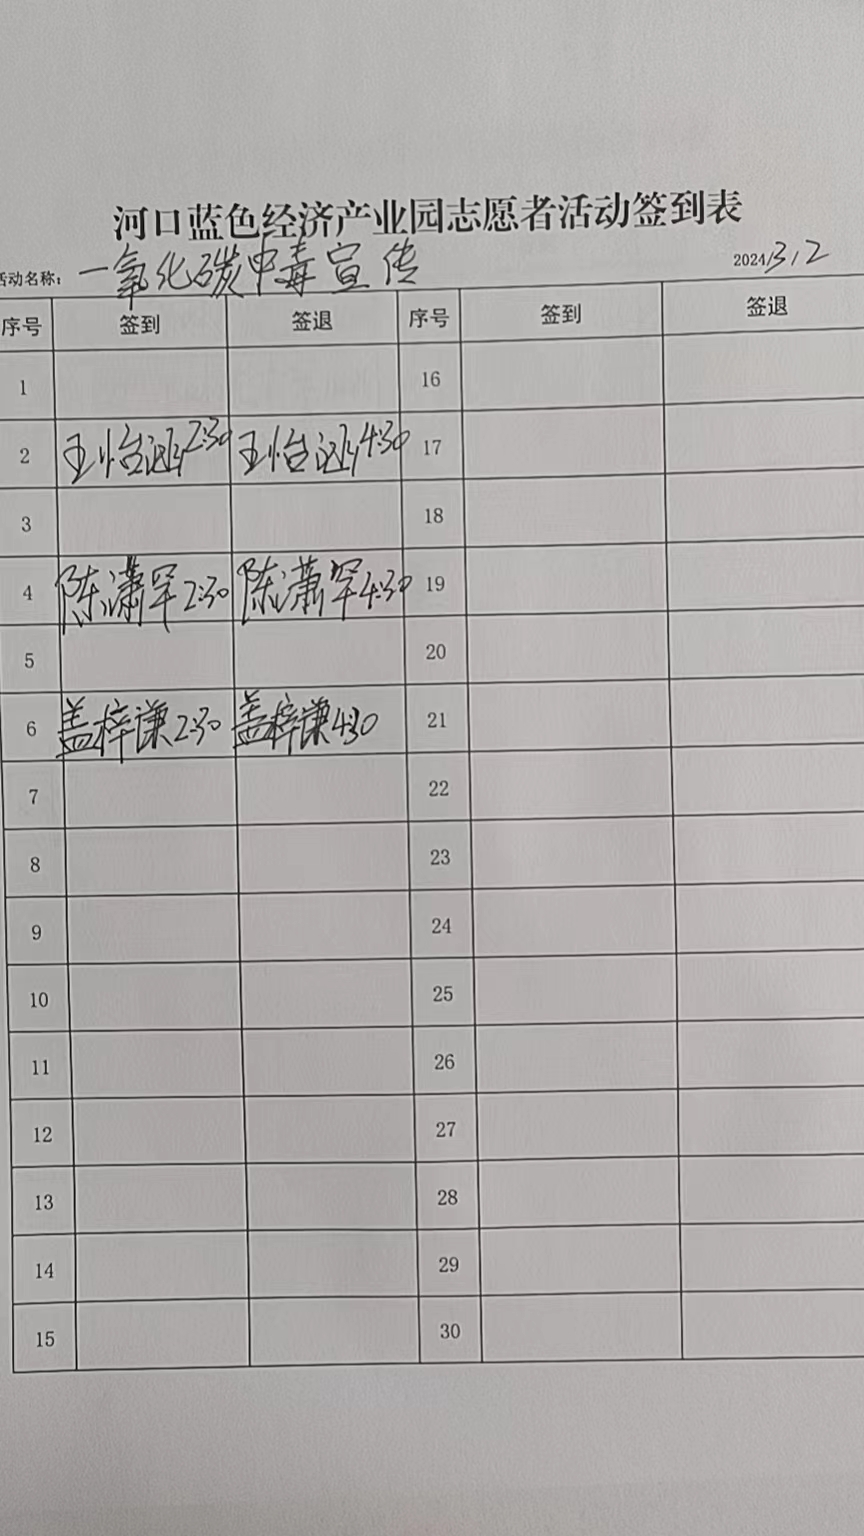 河口蓝色经济产业园志愿者活动签到表
活动名称：一氧化碳中毒宣传 2024/3/2
序号 签到 签退 序号 签到 签退
1 16
2 王怡 2:30 王怡 4:30 17
3 18
4 陈潇罕 2:30 陈潇罕 4:30 19
5 20
6 盖梓谦 2:30 盖梓谦 4:30 21
7 22
8 23
9 24
10 25
11 26
12 27
13 28
14 29
15 30